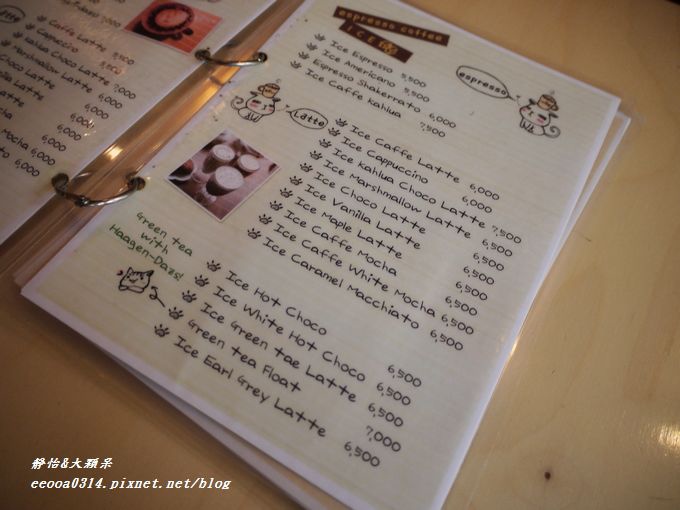 espresso coffee
ICE
espresso
Ice Espresso 5,500
Ice Americano 5,500
Espresso Shakerrato 6,000
Ice Caffe Kahlua 7,500
Latte
Ice Caffe Latte 6,000
Ice Cappuccino 6,000
Ice Kahlua Choco Latte 7,500
Ice Marshmallow Latte 6,500
Ice Choco Latte 6,500
Ice Vanilla Latte 6,500
Ice Maple Latte 6,500
Ice Caffe Mocha 6,500
Ice Caffe White Mocha 6,500
Ice Caramel Macchiato 6,500
Green tea
with
Haagen-Dazs!
Ice Hot Choco 6,500
Ice White Hot Choco 6,500
Ice Green tae Latte 6,500
Green tea Float 7,000
Ice Earl Grey Latte 6,500
Caffe Latte
Cappuccino
Kahlua Choco Latte 7,000
静怡&大顆呆
eeooa0314.pixnet.net/blog